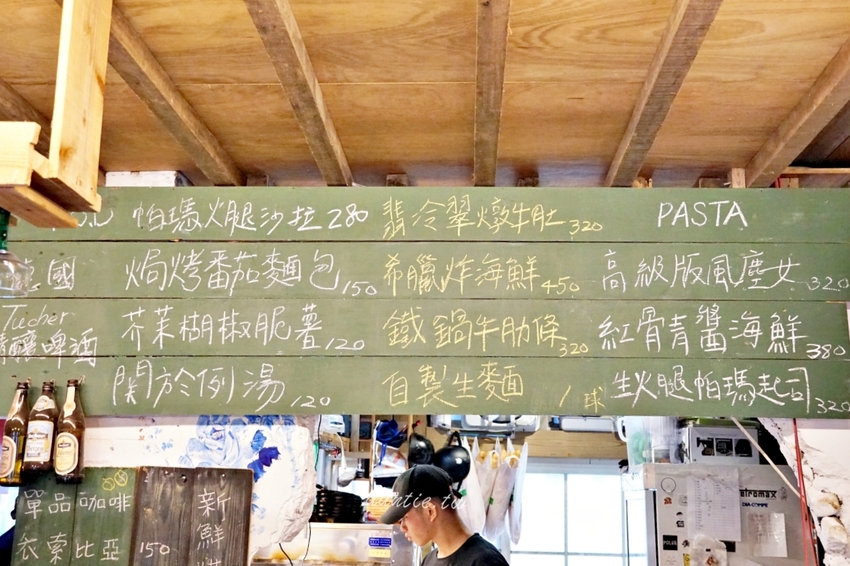 帕瑪火腿沙拉 280
焗烤番茄麵包 150
芥茉胡椒脆薯 120
關於例湯 120
翡冷翠燉牛肚 320
希臘炸海鮮 450
鐵鍋牛肋條 320
自製生麵 / 球
PASTA
高級版風塵女 320
紅骨青醬海鮮 380
生火腿帕瑪起司 320
國
Tucher
啤酒
單品咖啡
衣索比亞 150
新鮮